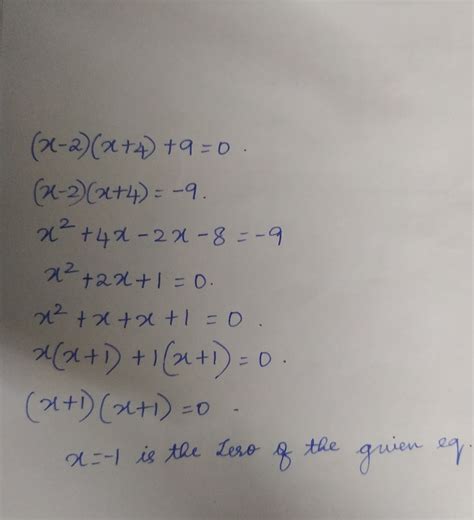 (x-2)(x+4) +9 = 0 .
(x-2)(x+4) = -9.
x² +4x -2x -8 = -9
x² +2x +1 = 0.
x² +x +x +1 = 0 .
x(x+1) +1(x+1) = 0 .
(x+1)(x+1) = 0 .
x = -1 is the Zero of the given eq.